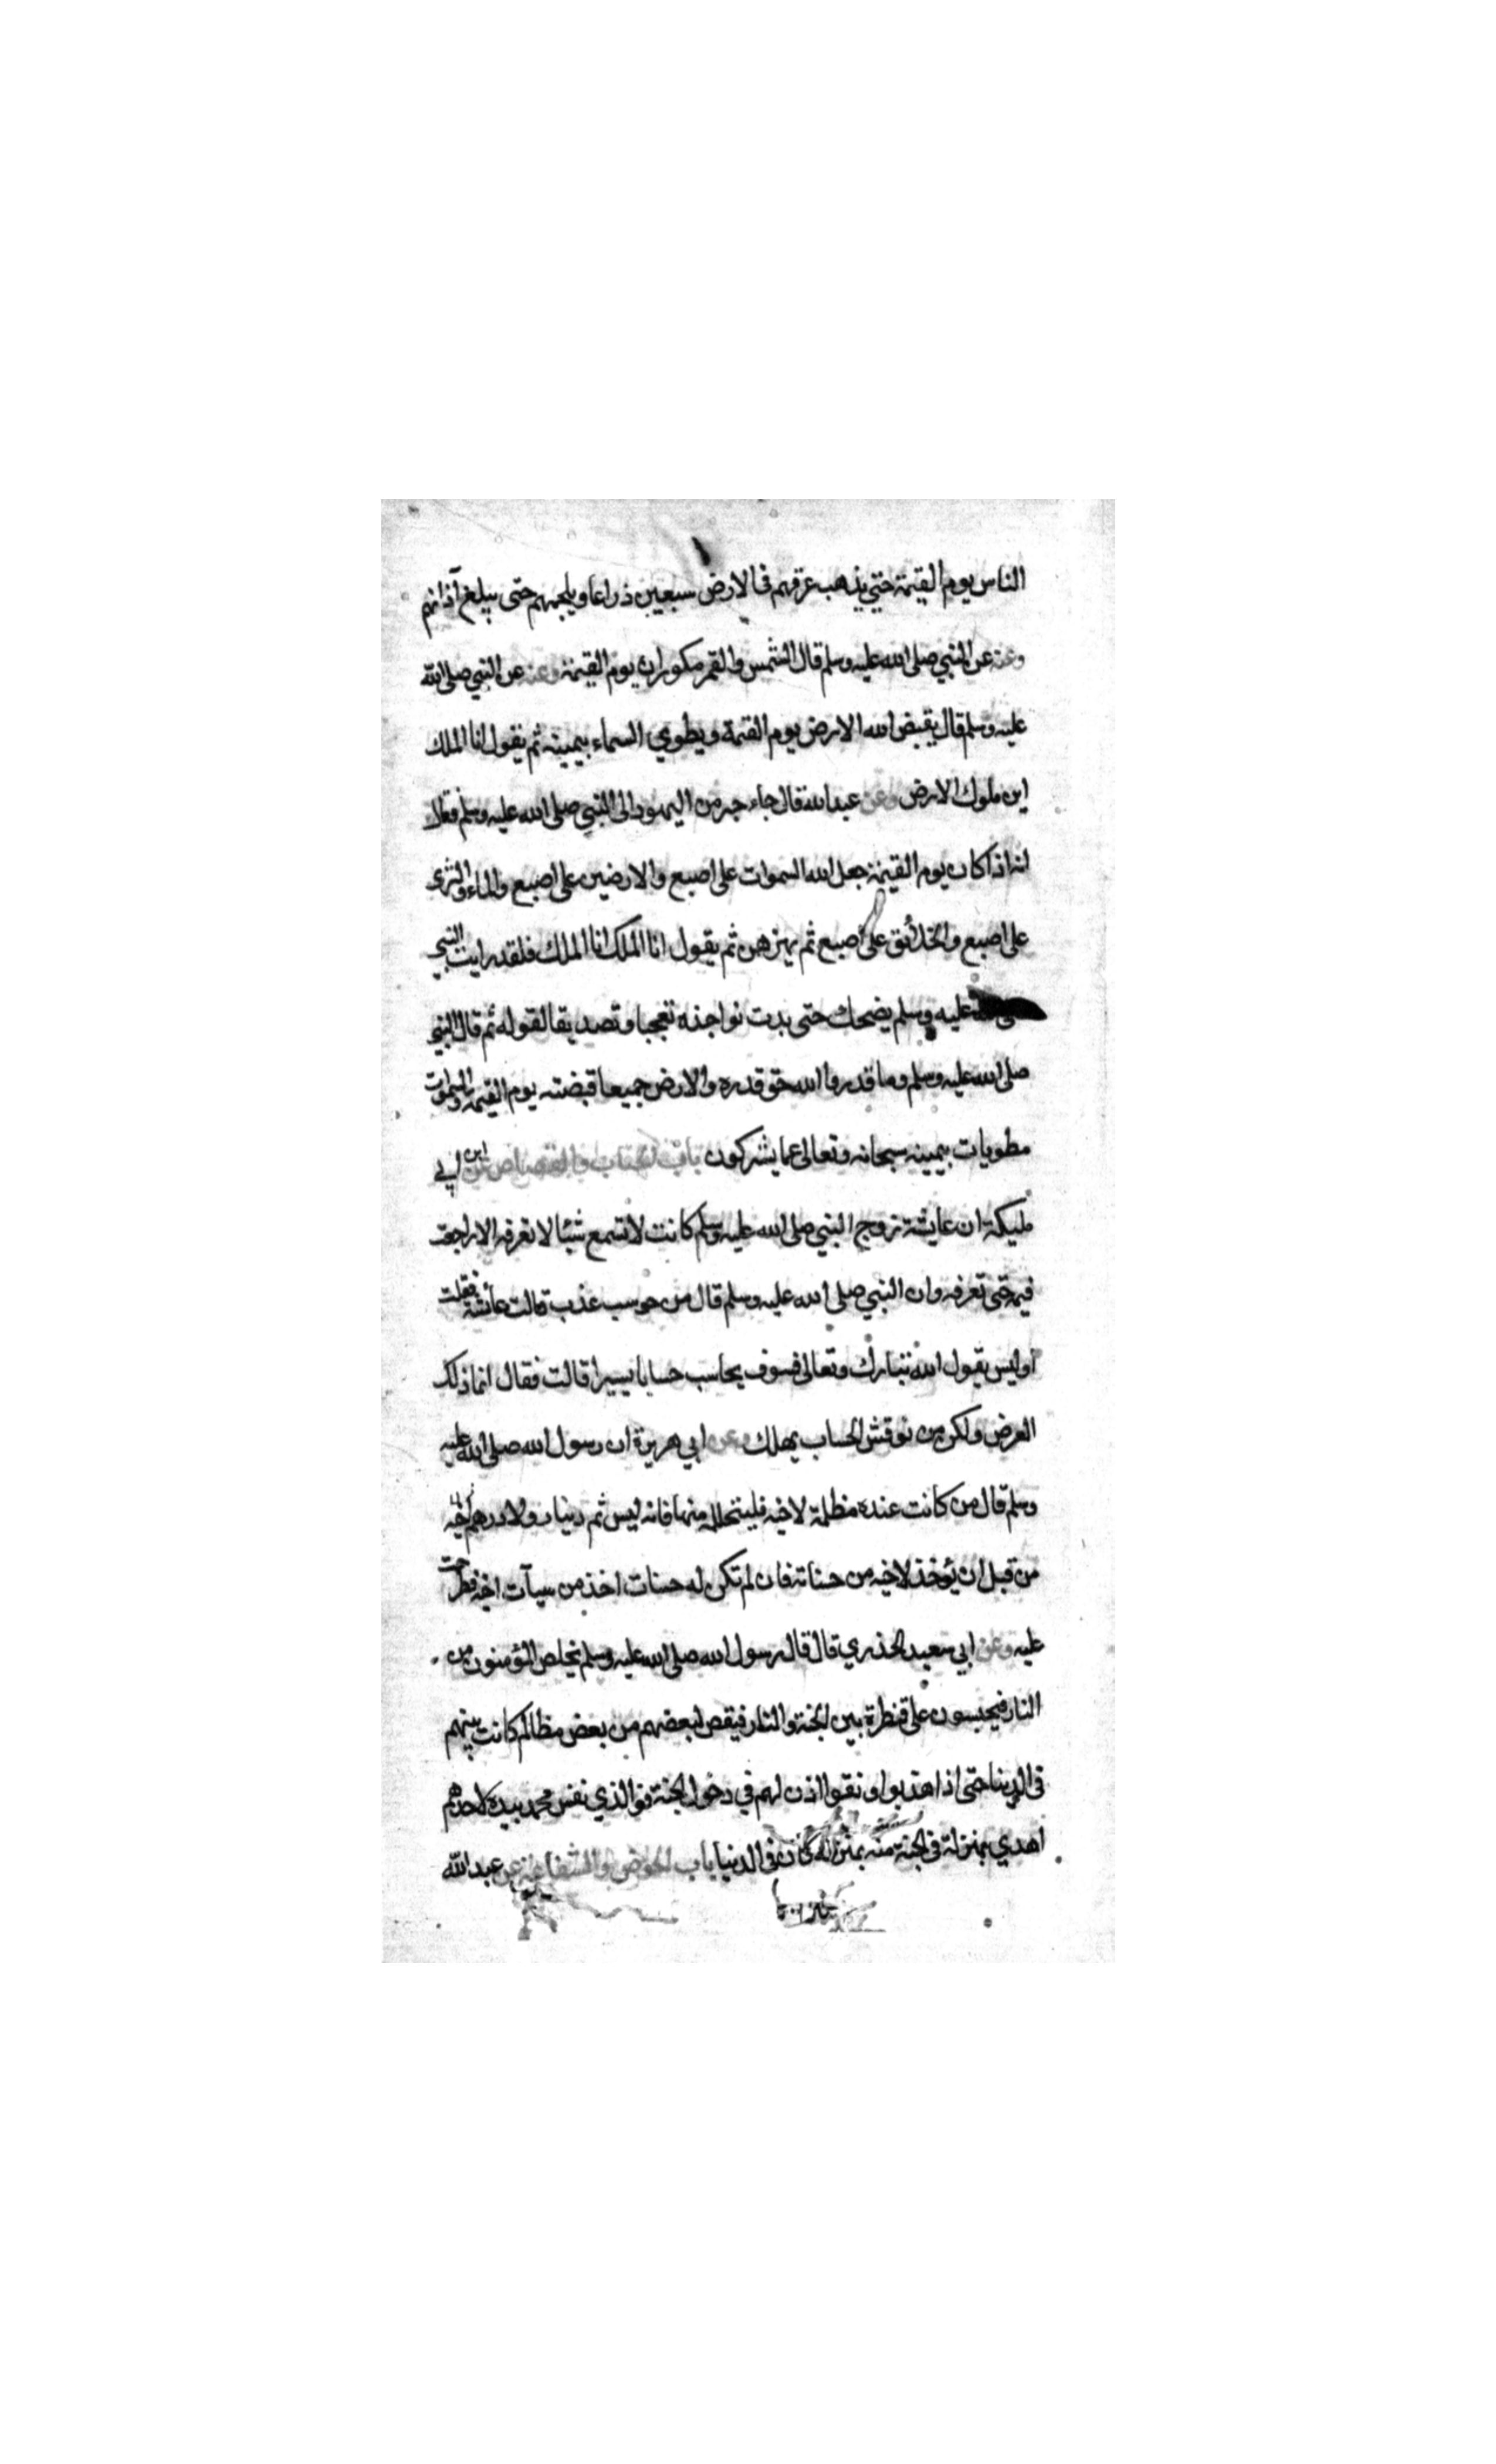 الناس يوم القيمة حتى يذهب عرقهم فى الارض سبعين ذراعا ويلجمهم حتى يبلغ آذانهم
وعنه عن النبي صلى الله عليه وسلم قال الشمس والقمر مكوران يوم القيمة وعنه عن النبي صلى الله
عليه وسلم قال يقبض الله الارض يوم القيمة ويطوي السماء بيمينه ثم يقول انا الملك
اين ملوك الارض وعن عبد الله قال جاء حبر من اليهود الى النبي صلى الله عليه وسلم فقال
انه اذا كان يوم القيمة جعل الله السموات على اصبع والارضين على اصبع والماء والثرى
على اصبع والخلائق على اصبع ثم يهزهن ثم يقول انا الملك انا الملك فلقد رايت النبي
صلى الله عليه وسلم يضحك حتى بدت نواجذه تعجبا وتصديقا لقوله ثم قال النبي
صلى الله عليه وسلم وما قدروا الله حق قدره والارض جميعا قبضته يوم القيمة والسموات
مطويات بيمينه سبحانه وتعالى عما يشركون باب الحساب والقصاص عن ابن ابي
مليكة ان عايشة زوج النبي صلى الله عليه وسلم كانت لا تسمع شيئا لا تعرفه الا راجعت
فيه حتى تعرفه وان النبي صلى الله عليه وسلم قال من حوسب عذب قالت عائشة فقلت
اوليس يقول الله تبارك وتعالى فسوف يحاسب حسابا يسيرا قالت فقال انما ذلك
العرض ولكن من نوقش الحساب يهلك وعن ابي هريرة ان رسول الله صلى الله عليه
وسلم قال من كانت عنده مظلمة لاخيه فليتحلله منها فانه ليس ثم دينار ولا درهم
من قبل ان يؤخذ لاخيه من حسناته فان لم تكن له حسنات اخذ من سيآت اخيه فطرحت
عليه وعن ابي سعيد الخذري قال قال رسول الله صلى الله عليه وسلم يخلص المؤمنون من
النار فيحبسون على قنطرة بين الجنة والنار فيقص لبعضهم من بعض مظالم كانت بينهم
فى الدينا حتى اذا هذبوا ونقوا اذن لهم في دخول الجنة فوالذي نفس محمد بيده لاحدهم
اهدي بمنزلة فى الجنة منه بمنزله كان فى الدنيا باب الحوض والشفاعة عن عبد الله